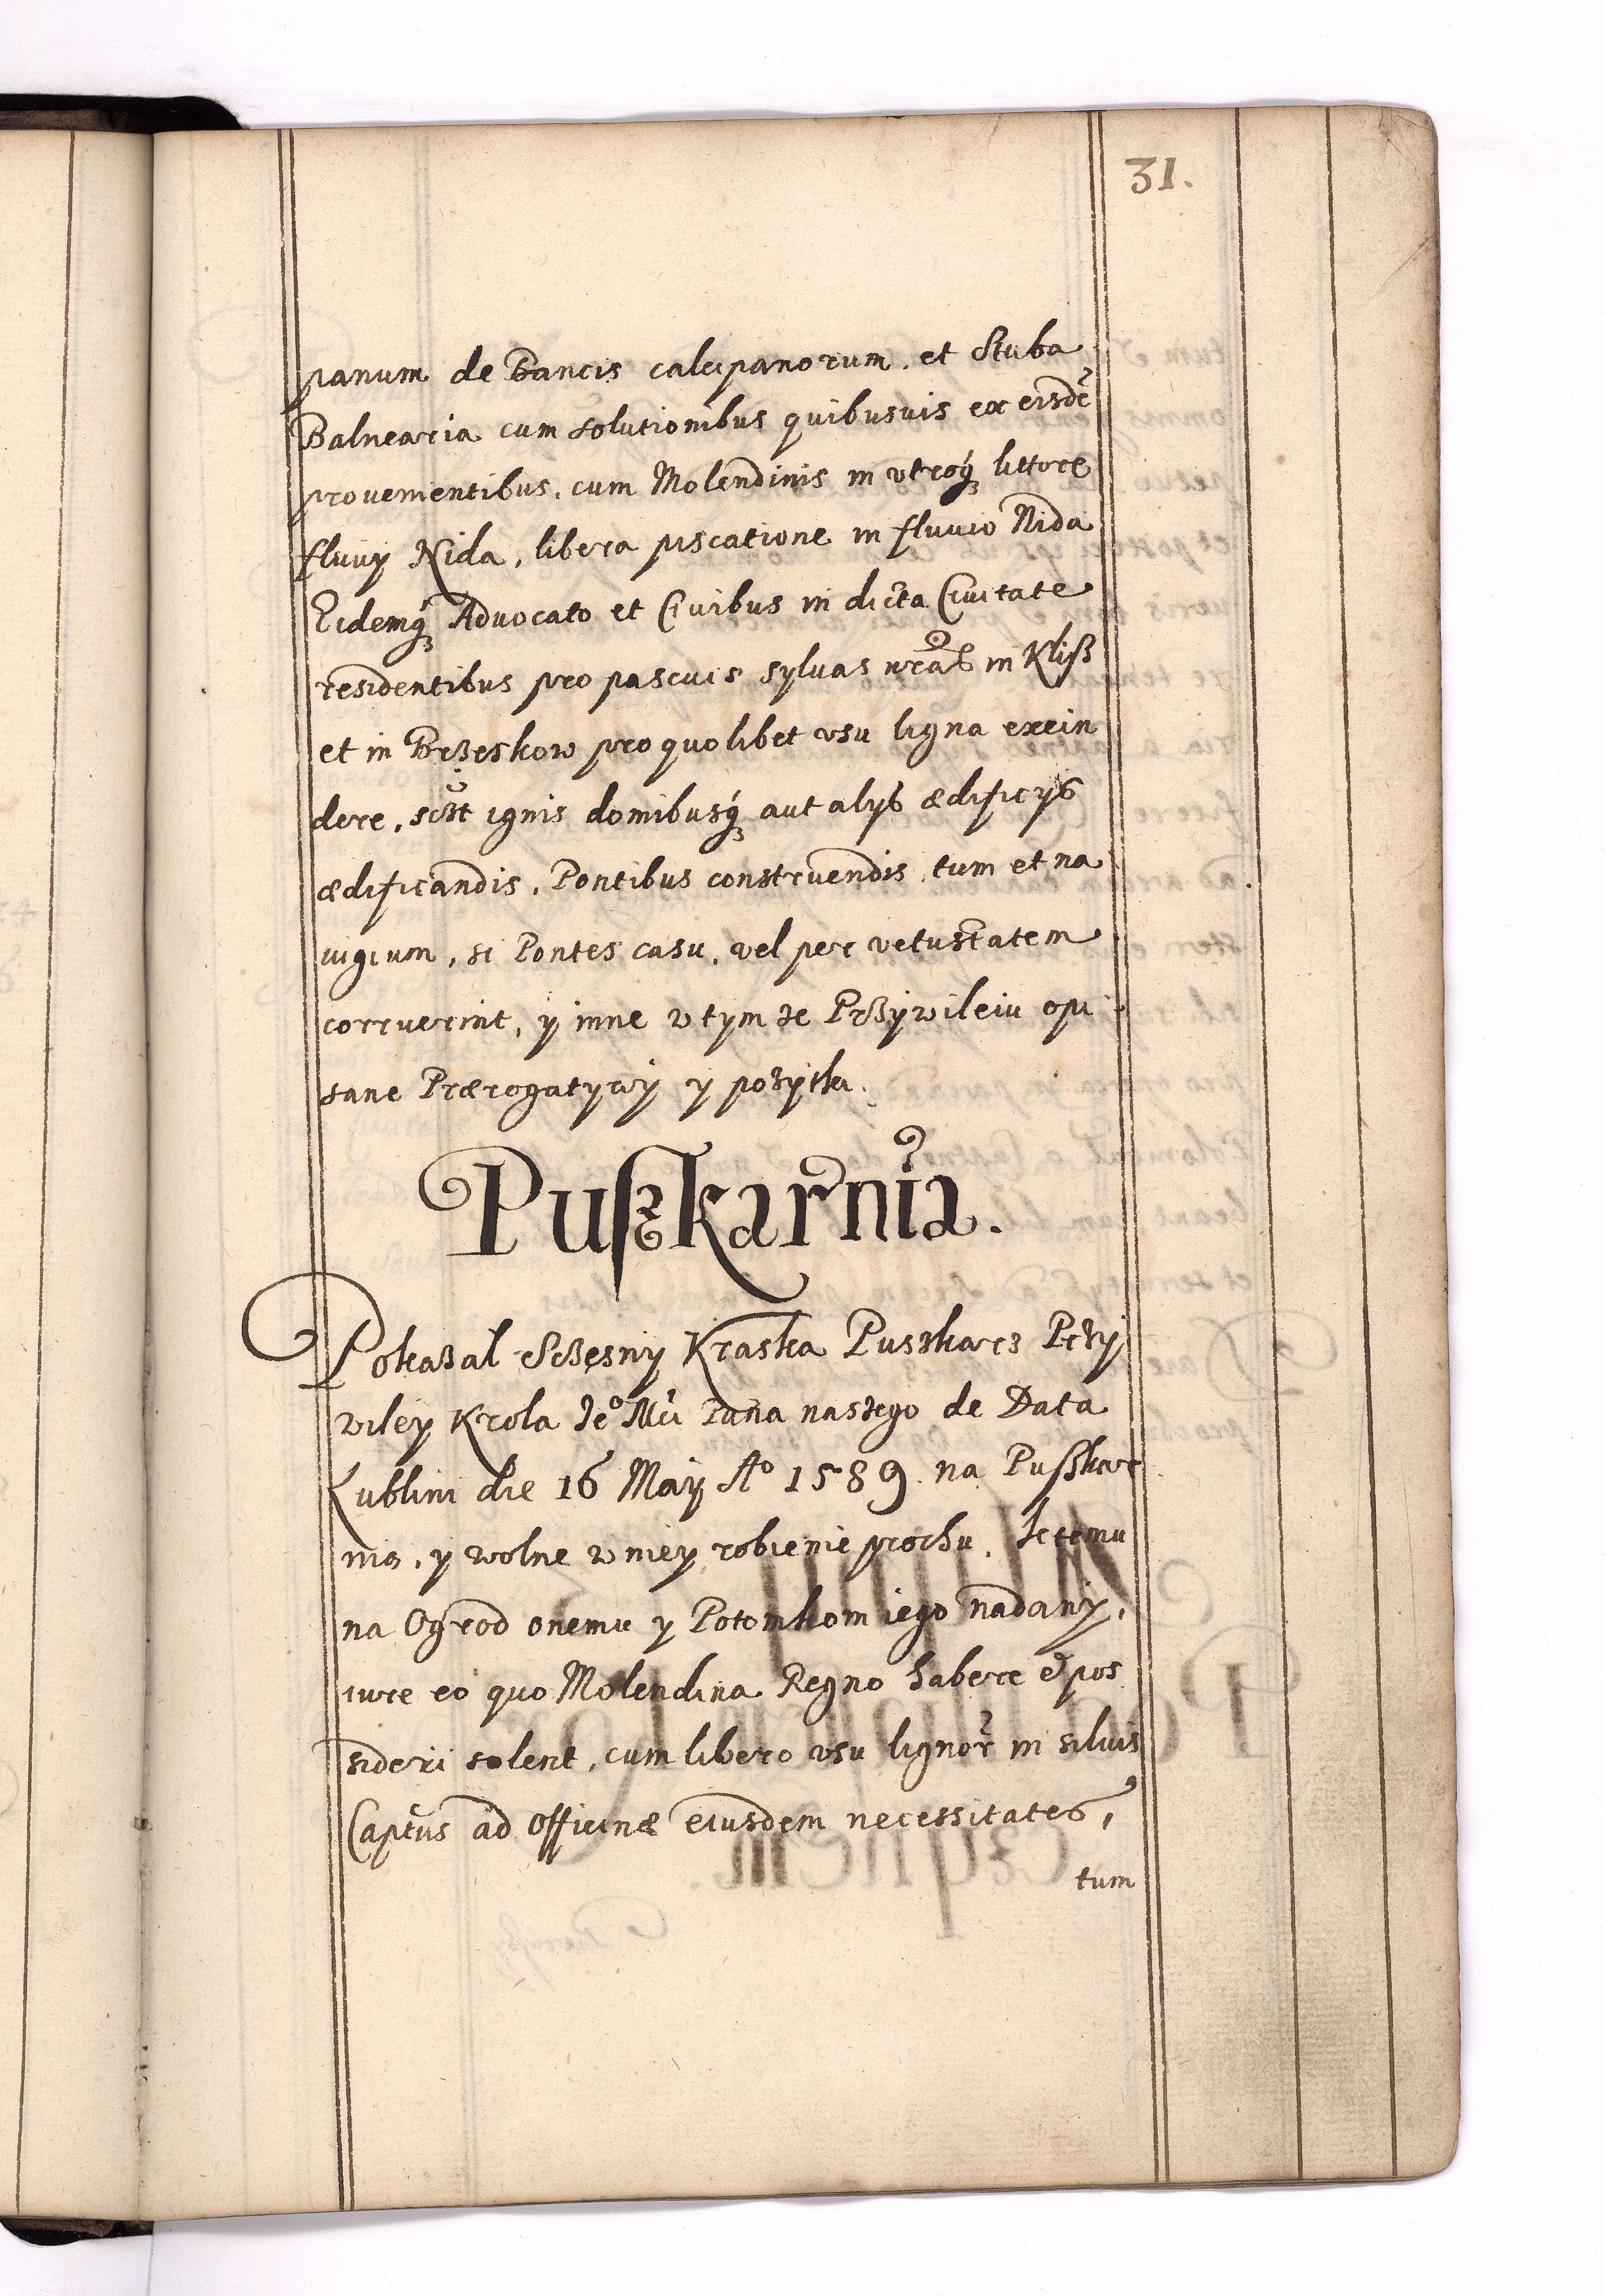 31.
panum de Bancis calcipanorum. et Stuba
Balnearia cum solutionibus quibusuis ex eisdẽ
prouenientibus, cum Molendinis in vtroq́ꝫ littore
fluuÿ Nida, libera piscatione in fluuio Nida
Eidemq́ꝫ Aduocato et Ciuibus in dicta Ciuitate
residentibus pro pascuis syluas nrãs in Kliß
et in Brzeskow pro quolibet vsu ligna exein
dere, ignis domibusq́ꝫ aut alÿs ædificÿs
ædificandis, Pontibus construendis, tum et na
uigium, si Pontes casu, vel per vetustatem
corruerint, y inne w tym ze Przÿwileiu opi
sane Prærogatywÿ y pożÿtki.
Puszkarnia.
Pokazal Sczęsnÿ Kraska Puszkarz Przÿ
wileÿ Krola Jeº Mći Pana naszego de Data
Lublini die 16 Maÿ Aº 1589. na Puszkar
nią, y wolne w nieÿ robienie prochu,
na Ogrod onemu y Potomkom iego nadanÿ,
iure eo quo Molendina Regno habere & pos
sideri solent, cum libero vsu lignor̃ in siluis
Captus ad Officinæ eiusdem necessitates,
tum